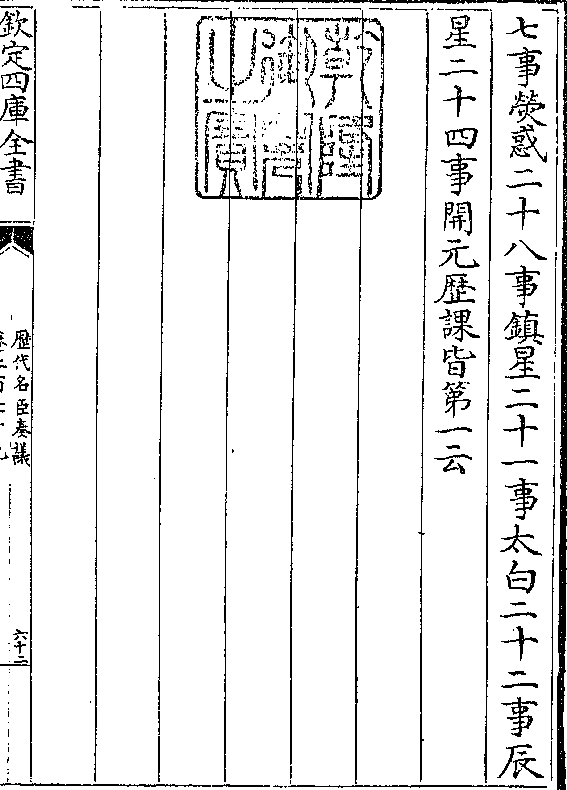 七事熒惑二十八事鎮星二十一事太白二十二事辰
星二十四事開元歴課皆第一云
乾隆御覽之寶
欽定四庫全書
歴代名臣奏議
六十二